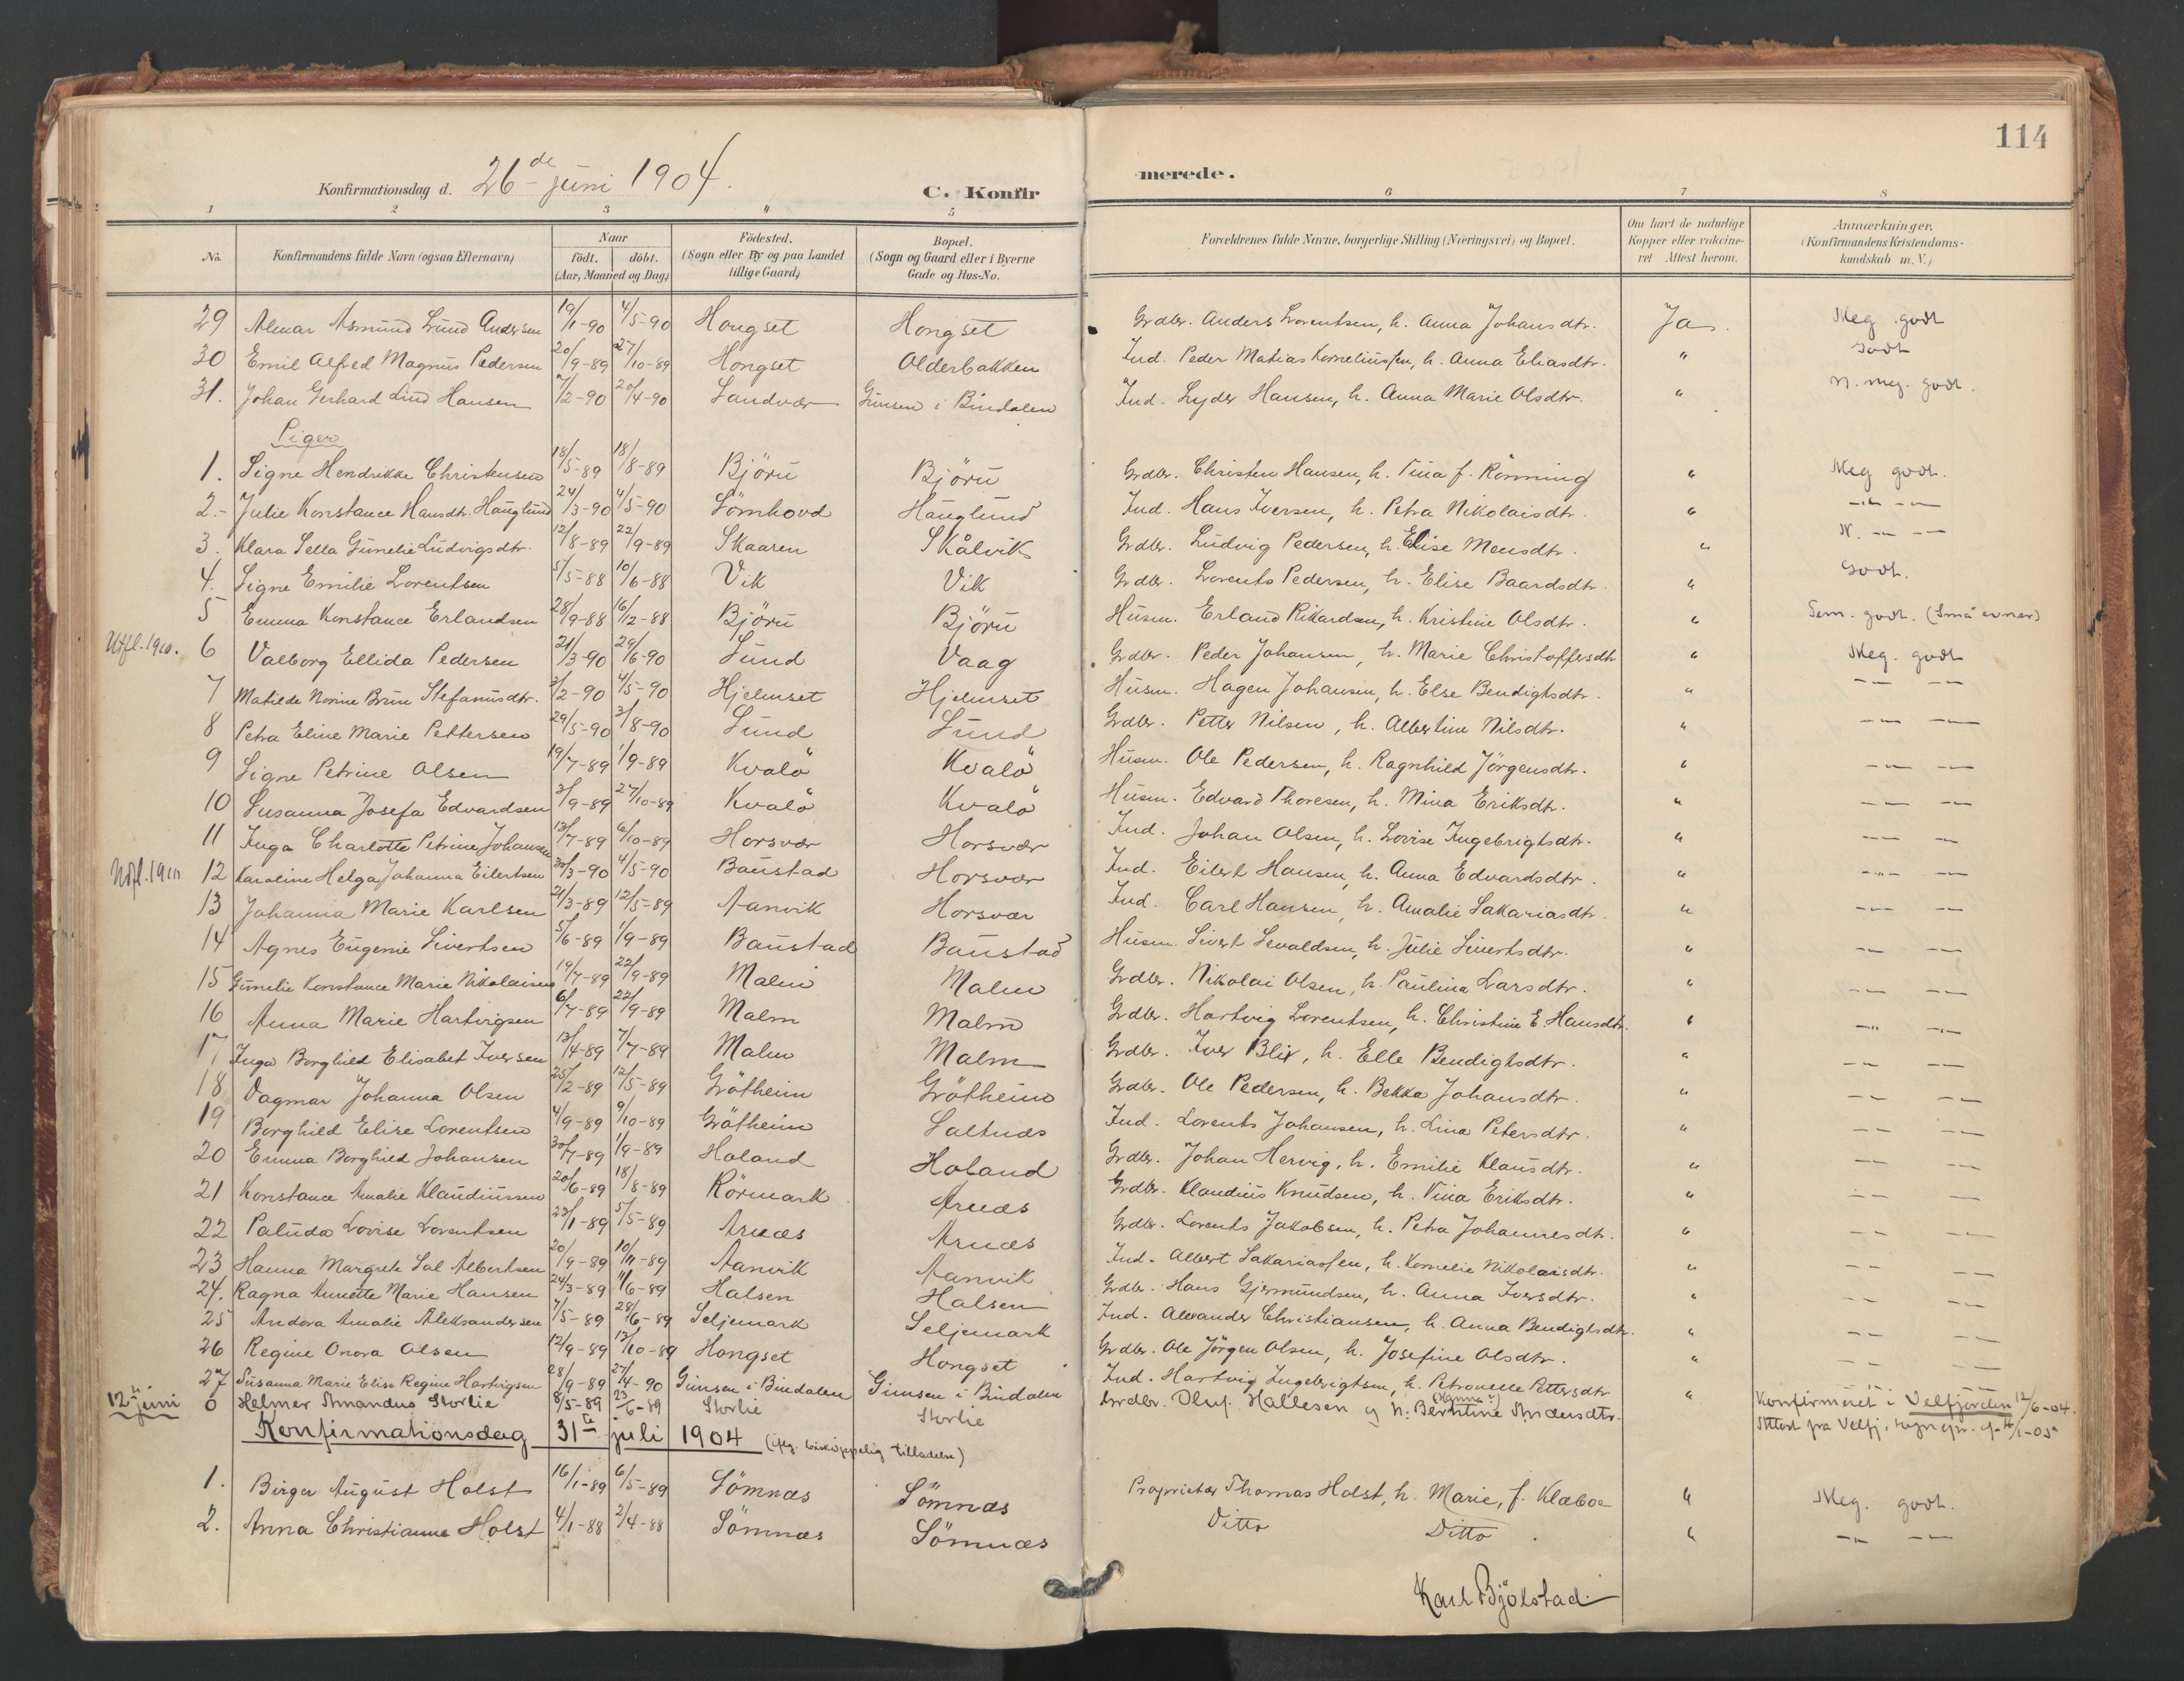 114
Konfirmationsdag d. 26de juni 1904.
C. Konfirmerede.
1 2 3 4 5 6 7 8
No. Konfirmandens fulde Navn (ogsaa Efternavn) Naar født. døbt. (Aar, Maaned og Dag) Fødested. (Sogn eller By og paa Landet tillige Gaard) Bopæl. (Sogn og Gaard eller i Byerne Gade og Hus-No. Forældrenes fulde Navne, borgerlige Stilling (Næringsvei) og Bopæl. Om havt de naturlige Kopper eller vakcineret Attest herom. Anmærkninger. (Konfirmandens Kristendomskundskab m. V.)
29 Almar Asmund Lund Andersen 19/1-90 4/5-90 Hongset Hongset Grdbr. Anders Lorentsen, h. Anna Johansdtr. Ja. Meg godt
30 Emil Alfred Magnus Pedersen 20/9-89 27/10-89 Hongset Olderbakken Ind. Peder Matias Korneliussen, h. Anna Eliasdtr. " Godt
31. Johan Gerhard Lind Hansen 7/2-90 20/4-90 Sandvær Gimsen i Bindalen Ind. Lyder Hansen, h. Anna Marie Olsdtr. " N. meg. godt.
Piger
1. Signe Hendrikke Christensen 18/5-89 18/8-89 Björu Björu Grdbr. Christen Hansen, h. Tina f. Rönning " Meg godt.
2. Julie Konstance Hansdtr. Hauglund 24/3-90 4/5-90 Sömhovd Hauglund Ind. Hans Iversen, h. Petra Nikolaisdtr. " -"- -"-
3. Klara Sella Gunelie Ludvigsdtr. 12/8-89 22/9-89 Skaaren Skålvik Grdbr. Ludvig Pedersen, h. Elise Monsdtr. " N. -"- -"-
4. Signe Emilie Lorentsen 5/5-88 10/6-88 Vik Vik Grdbr. Lorents Pedersen, h. Elise Baardsdtr. " Godt.
5 Emma Konstance Erlandsen 28/9-88 16/12-88 Björu Björu Husm. Erland Rikardsen, h. Kristine Olsdtr. " Tem. godt. (Små evner)
Utfl. 1910. 6 Valborg Ellida Pedersen 21/3-90 29/6-90 Lund Vaag Grdbr. Peder Johansen, h. Marie Christoffersdtr " Meg. godt
7 Matilde Norine Brun Stefanusdtr. 2/2-90 4/5-90 Hjelmset Hjelmset Husm. Hagen Johansen, h. Else Bendigtsdtr. " -"- -"-
8 Petra Eline Marie Pettersen 29/5-90 3/8-90 Lund Lund Grdbr. Petter Nilsen, h. Albertine Nilsdtr. " -"- -"-
9 Signe Petrine Olsen 19/7-89 1/9-89 Kvalö Kvalö Husm. Ole Pedersen, h. Ragnhild Jörgensdtr. " -"- -"-
10 Susanna Josefa Edvardsen 3/9-89 27/10-89 Kvalö Kvalö Husm. Edvard Thoresen, h. Mina Eriksdtr. " -"- -"-
11 Inga Charlotte Petrine Johansen 13/7-89 6/10-89 Horsvær Horsvær Ind. Johan Olsen, h. Lovise Ingebrigtsdtr. " -"- -"-
Utfl. 1910 12 Karoline Helga Johanna Eilertsen 30/3-90 4/5-90 Baustad Horsvær Ind. Eilert Hansen, h. Anna Edvardsdtr. " -"- -"-
13 Johanna Marie Karlsen 21/3-89 12/5-89 Aanvik Horsvær Ind. Carl Hansen, h. Amalie Sakariasdtr. " -"- -"-
14 Agnes Eugenie Sivertsen 5/6-89 1/9-89 Baustad Baustad Husm. Sivert Sevaldsen, h. Julie Sivertsdtr. " -"- -"-
15 Gunelie Konstance Marie Nikolaisen 19/7-89 22/9-89 Malm Malm Grdbr. Nikolai Olsen, h. Paulina Larsdtr. " -"- -"-
16 Anna Marie Hartvigsen 6/7-89 22/9-89 Malm Malm Grdbr. Hartvig Lorentsen, h. Christine E. Hansdtr. " -"- -"-
17 Inga Borghild Elisabet Iversen 13/4-89 7/7-89 Malm Malm Grdbr. Iver Blix, h. Elle Bendigtsdtr. " -"- -"-
18 Dagmar Johanna Olsen 25/2-89 12/5-89 Grötheim Grötheim Grdbr. Ole Pedersen, h. Bekka Johansdtr. " -"- -"-
19 Borghild Elise Lorentsen 4/9-89 9/10-89 Grötheim Saltnæs Ind. Lorents Johansen, h. Lina Petersdtr. " -"- -"-
20 Emma Borghild Johansen 30/7-89 1/9-89 Holand Holand Grdbr. Johan Hervig, h. Emilie Klausdtr. " -"- -"-
21 Konstance Amalie Klaudiussen 20/6-89 18/8-89 Rörmark Arnæs Grdbr. Klaudius Knudsen, h. Tina Eriksdtr. " -"- -"-
22 Paluda Lovise Lorentsen 23/1-89 5/5-89 Arnæs Arnæs Grdbr. Lorents Jakobsen, h. Petra Johannesdtr. " -"- -"-
23 Hanna Margrete Sal Albertsen 20/9-89 10/11-89 Aanvik Aanvik Ind. Albert Sakariassen, h. Kornelie Nikolaisdtr. " -"- -"-
24. Ragna Annette Marie Hansen 24/3-89 11/6-89 Halsen Halsen Grdbr. Hans Gjermundsen, h. Anna Iversdtr. " -"- -"-
25 Andora Amalie Aleksandersen 7/5-89 28/6-89 Seljemark Seljemark Ind. Alexander Christiansen, h. Anna Bendigtsdtr. " -"- -"-
26 Regine Onora Olsen 12/9-89 13/10-89 Hongset Hongset Grdbr. Ole Jörgen Olsen, h. Josefine Olsdtr. " -"- -"-
27 Susanna Marie Elise Regine Hartvigsen 28/9-89 27/4-90 Gimsen i Bindalen Gimsen i Bindalen Ind. Hartvig Ingebrigtsen, h. Petronelle Pettersdtr " -"- -"-
12te juni 0 Helmer Amandus Storlie 8/5-89 23/6-89 Storlie Storlie Grdbr. Oluf Hallesen og h. Berntine (Hanna?) Andersdtr. Konfirmeret i Velfjorden 12/6-04. Attest fra Velfj. sognepr. af 4/1-05
Konfirmationsdag 31te juli 1904 (iflg. biskoppelig tilladelse)
1. Birger August Holst 16/1-89 6/5-89 Sömnæs Sömnæs Proprietær Thomas Holst, h. Marie, f. Klæboe " Meg. godt.
2. Anna Christianne Holst 4/1-88 2/4-88 Sömnæs Sömnæs Ditto Ditto " -"- -"-
Karl Bjölstad